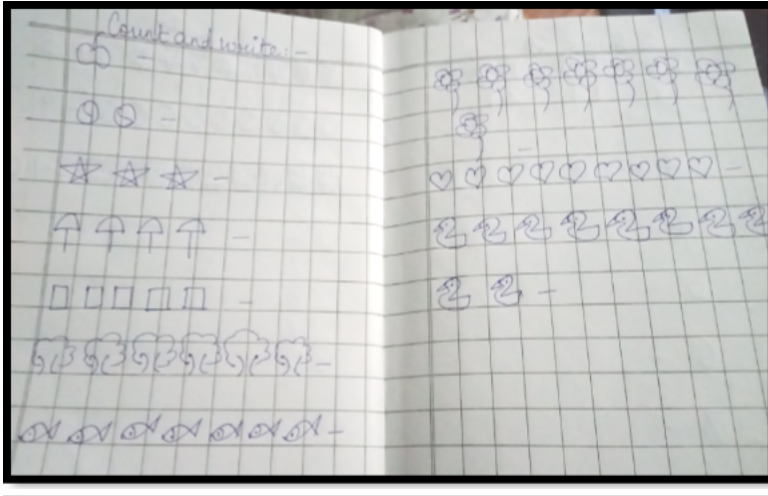 Count and write:-